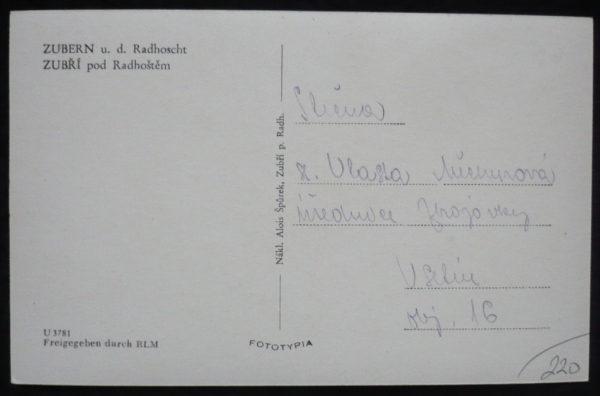 ZUBERN u. d. Radhoscht
ZUBŘÍ pod Radhoštěm
Nákl. Alois Špůrek, Zubří p. Radh.
Slečna
Vlasta
úřednice Zbrojovky
Vsetín
obj. 16
U 3781
Freigegeben durch RLM
FOTOTYPIA
220